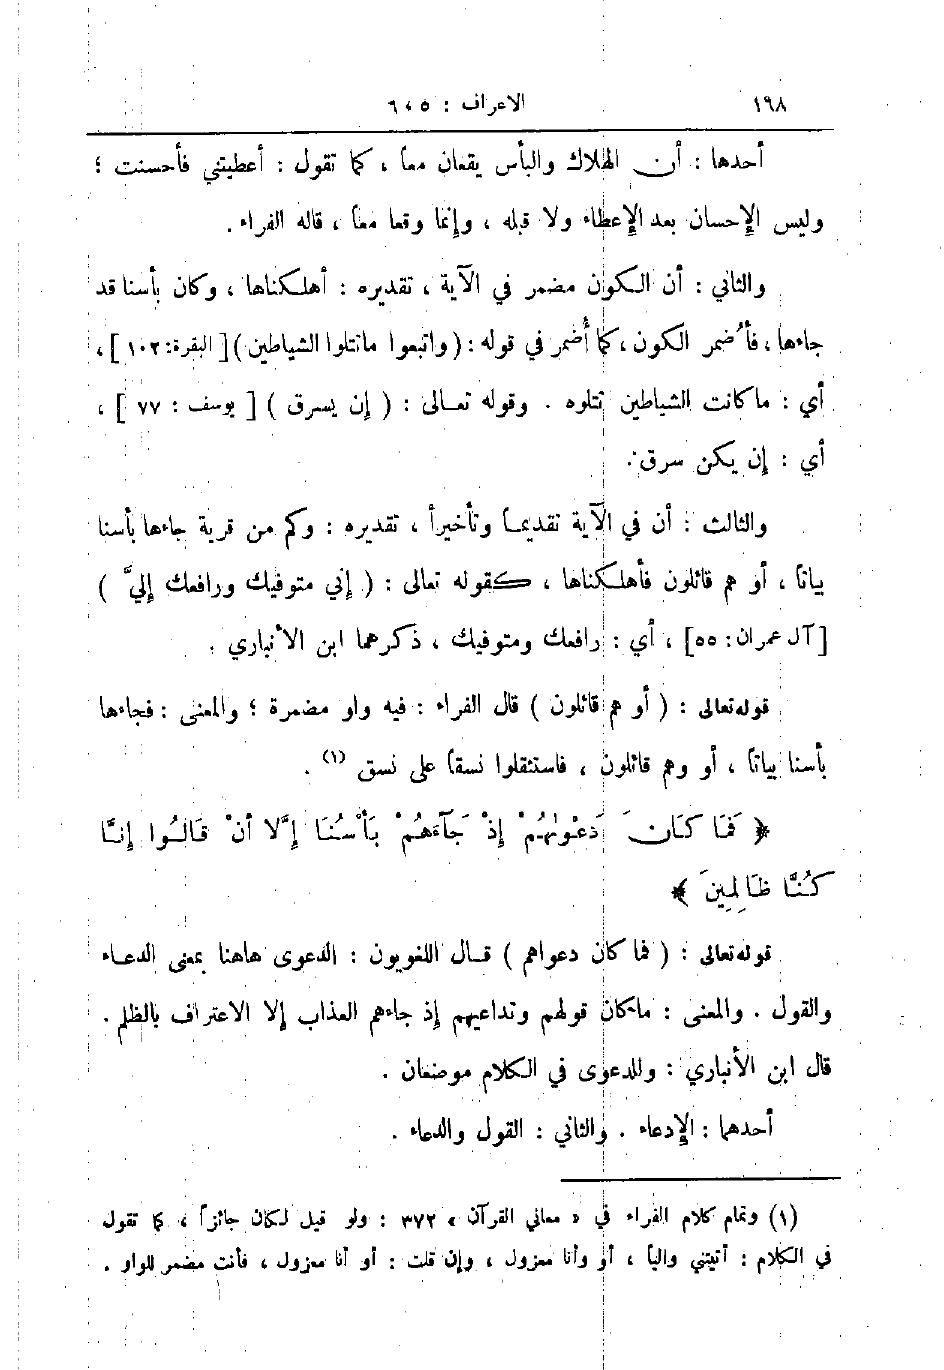 ١٩٨
الاعراف : ٦،٥
أحدها : أن الهلاك والبأس يقعان معاً ، كما تقول : أعطيتني فأحسنت ؛
وليس الإحسان بعد الإعطاء ولا قبله ، وإنما وقعا معاً ، قاله الفراء .
والثاني : أن الكون مضمر في الآية ، تقديره : أهلكناها ، وكان بأسنا قد
جاءها ، فأُضمر الكون ، كما أُضمر في قوله : ( واتبعوا ماتتلوا الشياطين ) [ البقرة : ١٠٢ ] ،
أي : ماكانت الشياطين تتلوه . وقوله تعالى : ( إن يسرق ) [ يوسف : ٧٧ ] ،
أي : إن يكن سرق .
والثالث : أن في الآية تقديماً وتأخيراً ، تقديره : وكم من قرية جاءها بأسنا
بياتاً ، أو هم قائلون فأهلكناها ، كقوله تعالى : ( إني متوفيك ورافعك إليَّ )
[ آل عمران : ٥٥ ] ، أي : رافعك ومتوفيك ، ذكرهما ابن الأنباري .
قوله تعالى : ( أو هم قائلون ) قال الفراء : فيه واو مضمرة ؛ والمعنى : فجاءها
بأسنا بياتاً ، أو وهم قائلون ، فاستثقلوا نسقاً على نسق (١) .
﴿ فَمَا كَانَ دَعْوٰيهُمْ إِذْ جَآءَهُمْ بَأْسُنَا إِلَّا أَنْ قَالُوا إِنَّا
كُنَّا ظَالِمِينَ ﴾
قوله تعالى : ( فما كان دعواهم ) قال اللغويون : الدعوى هاهنا بمعنى الدعاء
والقول . والمعنى : ماكان قولهم وتداعيهم إذ جاءهم العذاب إلا الاعتراف بالظلم .
قال ابن الأنباري : وللدعوى في الكلام موضعان .
أحدهما : الإدعاء . والثاني : القول والدعاء .
(١) وتمام كلام الفراء في « معاني القرآن » ٣٧٢ : ولو قيل لكان جائزاً ، كما تقول
في الكلام : أتيتني والياً ، أو وأنا معزول ، وإن قلت : أو أنا معزول ، فأنت مضمر للواو .